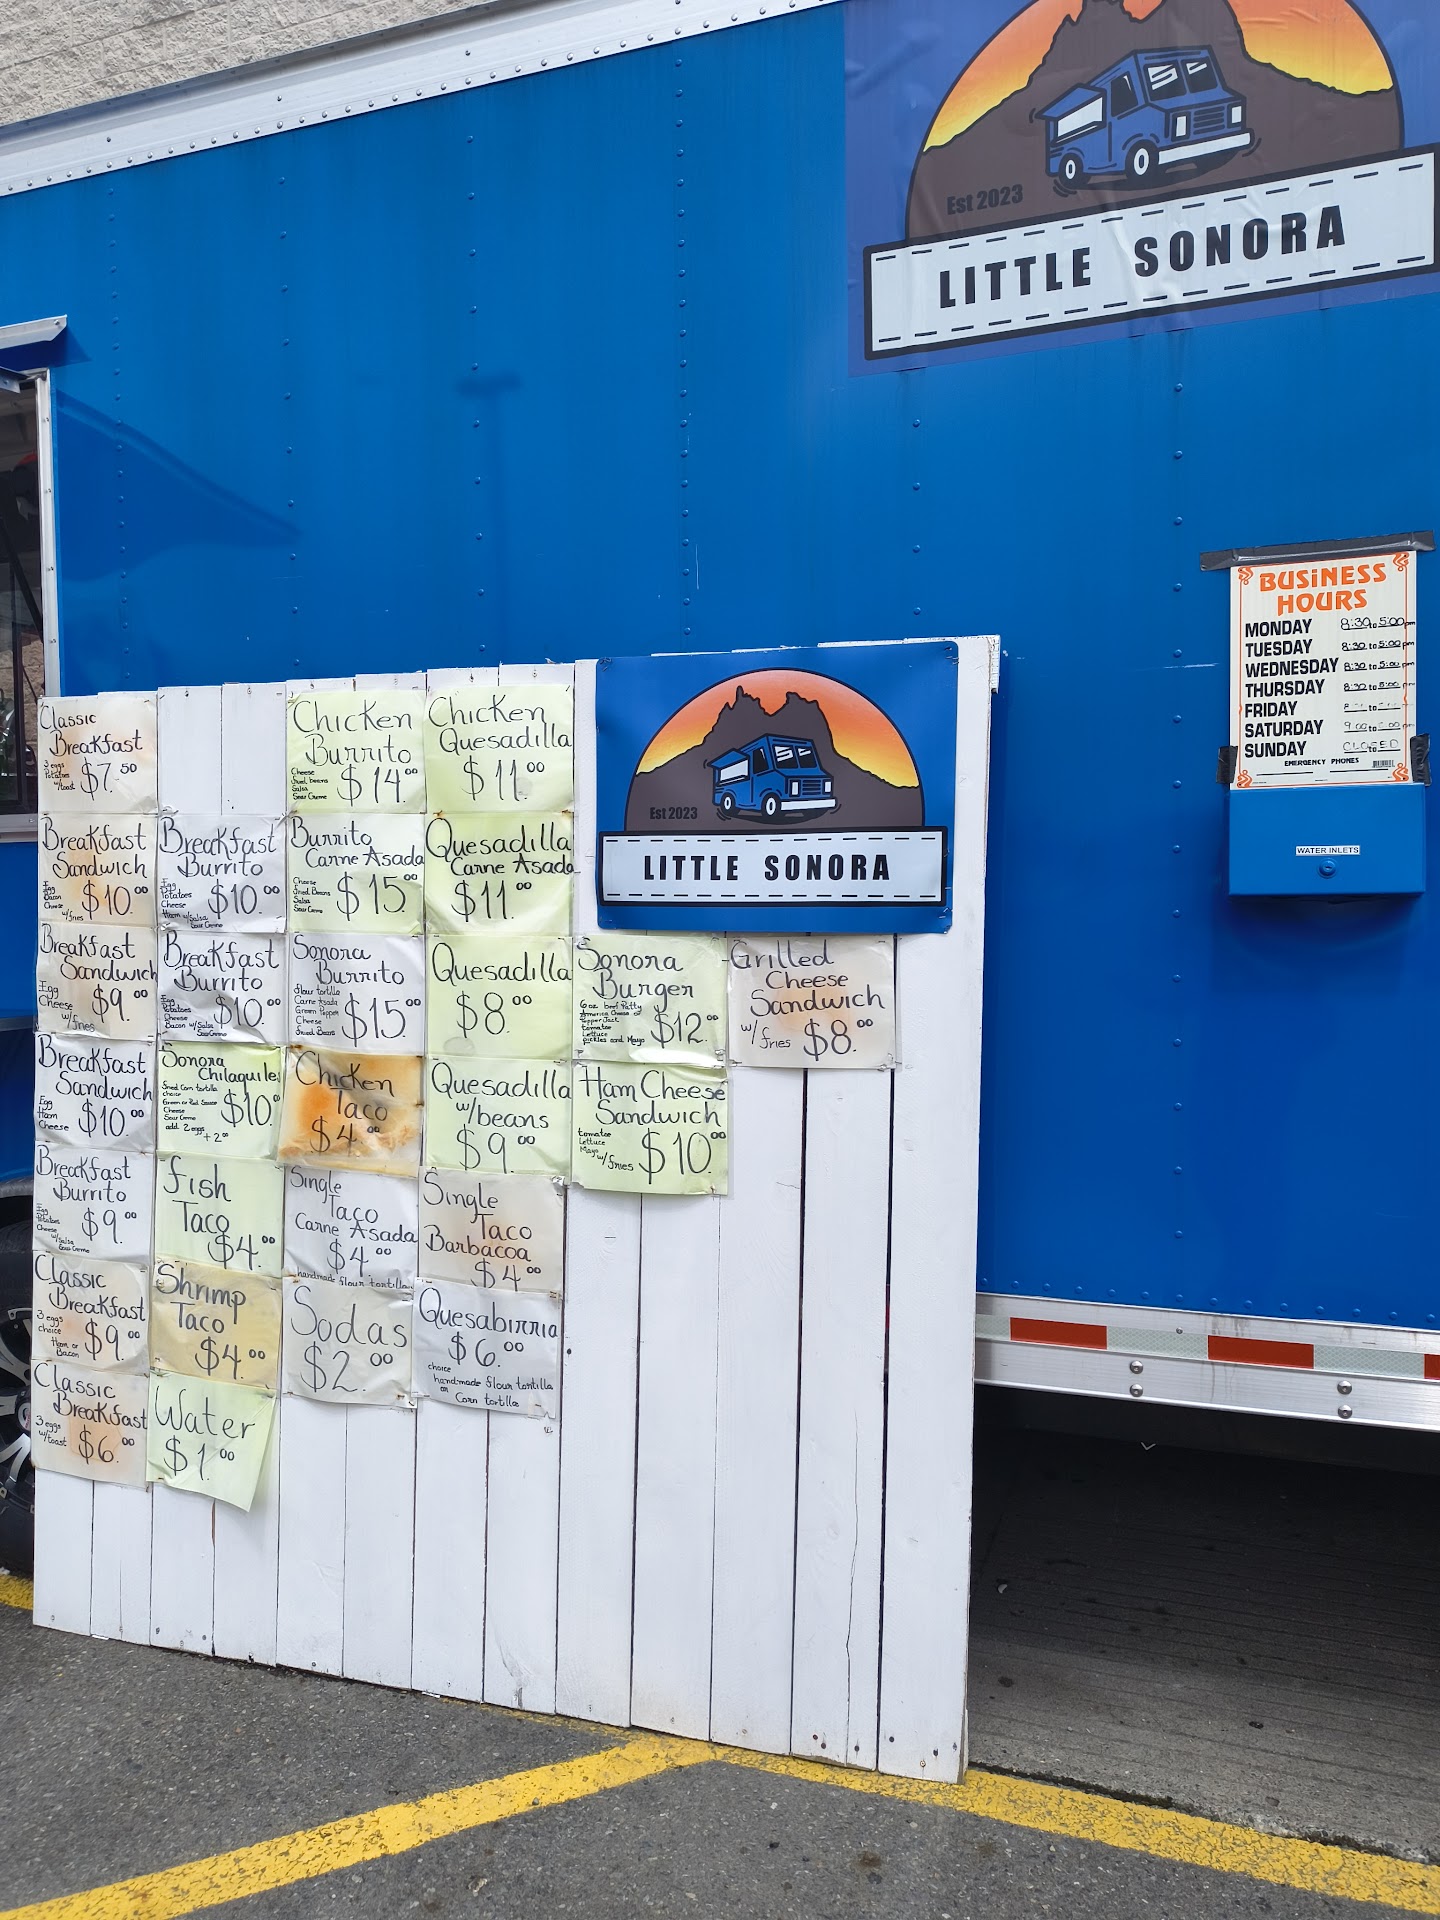 Est 2023
LITTLE SONORA
BUSINESS
HOURS
MONDAY 8:30 to 5:00 pm
TUESDAY 8:30 to 5:00 pm
WEDNESDAY 8:30 to 5:00 pm
THURSDAY 8:30 to 5:00 pm
FRIDAY
SATURDAY 9:00 to :00 pm
SUNDAY CLOSED
EMERGENCY PHONES
WATER INLETS
Est 2023
LITTLE SONORA
Classic
Breakfast
3 eggs
Potatoes
w/toast
$7.50
Breakfast
Sandwich
Egg
Bacon
Cheese
w/fries
$10.00
Breakfast
Sandwich
Egg
Cheese
w/fries
$9.00
Breakfast
Sandwich
Egg
Ham
Cheese
$10.00
Breakfast
Burrito
Egg
Potatoes
Cheese
w/Salsa
Sour Creme
$9.00
Classic
Breakfast
3 eggs
choice
Ham or
Bacon
$9.00
Classic
Breakfast
3 eggs
w/toast
$6.00
Breakfast
Burrito
Egg
Potatoes
Cheese
Ham w/Salsa
Sour Creme
$10.00
Breakfast
Burrito
Egg
Potatoes
Cheese
Bacon w/Salsa
Sour Creme
$10.00
Sonora
Chilaquiles
fried Corn tortilla
choice
Green or Red Sauce
Cheese
Sour Creme
add 2 eggs
+2.00
$10.00
fish
Taco
$4.00
Shrimp
Taco
$4.00
Water
$1.00
Chicken
Burrito
Cheese
fried beans
Salsa
Sour Creme
$14.00
Burrito
Carne Asada
Cheese
fried Beans
Salsa
Sour Creme
$15.00
Sonora
Burrito
flour tortilla
Carne Asada
Green Pepper
Cheese
fried Beans
$15.00
Chicken
Taco
$4.00
Single
Taco
Carne Asada
$4.00
handmade flour tortilla
Sodas
$2.00
Chicken
Quesadilla
$11.00
Quesadilla
Carne Asada
$11.00
Quesadilla
$8.00
Quesadilla
w/beans
$9.00
Single
Taco
Barbacoa
$4.00
Quesabirria
$6.00
choice
handmade flour tortilla
or
Corn tortilla
Sonora
Burger
6 oz beef Patty
America Cheese or
Pepper Jack
tomatoe
Lettuce
pickles and Mayo
$12.00
Ham Cheese
Sandwich
tomatoe
Lettuce
Mayo
w/fries
$10.00
Grilled
Cheese
Sandwich
w/
fries
$8.00